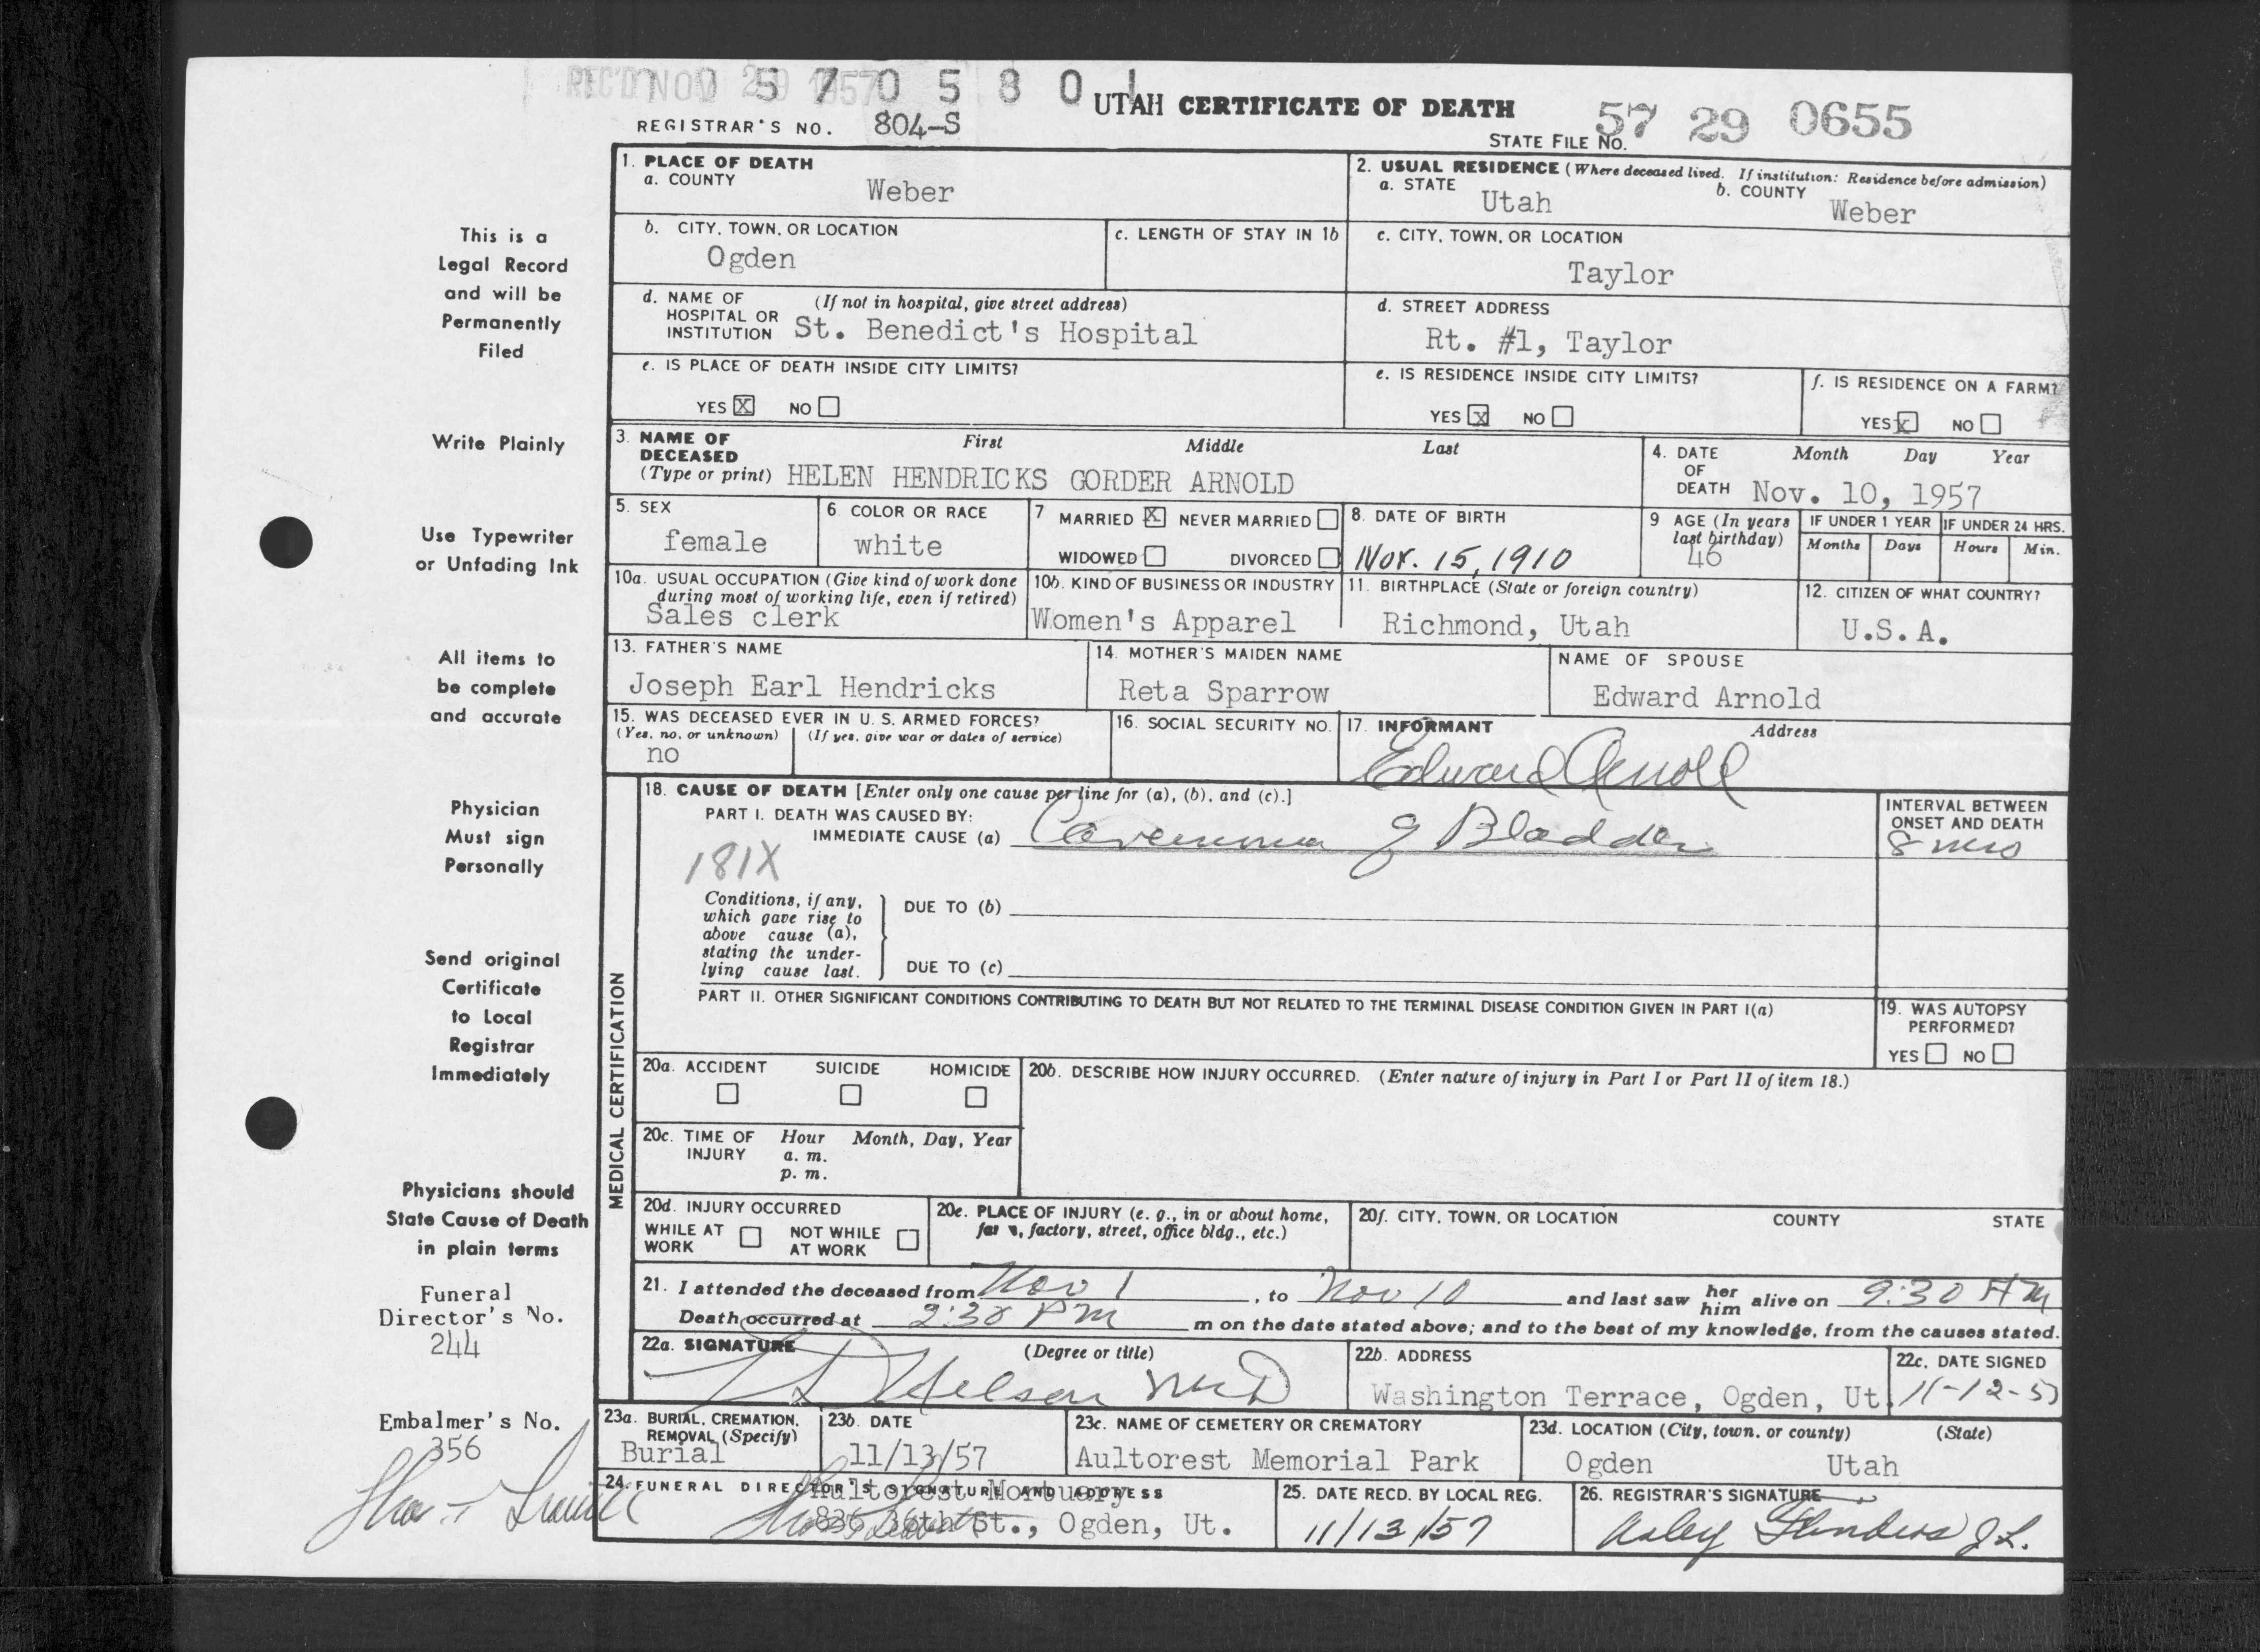 REC'D NOV 20 1957
5 7 0 5 8 0 1
UTAH CERTIFICATE OF DEATH
57 29 0655
REGISTRAR'S NO. 804-S
STATE FILE NO.
This is a
Legal Record
and will be
Permanently
Filed
Write Plainly
Use Typewriter
or Unfading Ink
All items to
be complete
and accurate
Physician
Must sign
Personally
Send original
Certificate
to Local
Registrar
Immediately
Physicians should
State Cause of Death
in plain terms
Funeral
Director's No.
244
Embalmer's No.
356
1. PLACE OF DEATH
a. COUNTY
Weber
2. USUAL RESIDENCE (Where deceased lived. If institution: Residence before admission)
a. STATE
Utah
b. COUNTY
Weber
b. CITY, TOWN, OR LOCATION
Ogden
c. LENGTH OF STAY IN 1b
c. CITY, TOWN, OR LOCATION
Taylor
d. NAME OF (If not in hospital, give street address)
HOSPITAL OR
INSTITUTION St. Benedict's Hospital
d. STREET ADDRESS
Rt. #1, Taylor
e. IS PLACE OF DEATH INSIDE CITY LIMITS?
YES X NO
e. IS RESIDENCE INSIDE CITY LIMITS?
YES X NO
f. IS RESIDENCE ON A FARM?
YES X NO
3. NAME OF
DECEASED
(Type or print)
First Middle Last
HELEN HENDRICKS GORDER ARNOLD
4. DATE
OF
DEATH
Month Day Year
Nov. 10, 1957
5. SEX
female
6. COLOR OR RACE
white
7 MARRIED X NEVER MARRIED
WIDOWED DIVORCED
8. DATE OF BIRTH
Nov. 15, 1910
9 AGE (In years
last birthday)
46
IF UNDER 1 YEAR
Months Days
IF UNDER 24 HRS.
Hours Min.
10a. USUAL OCCUPATION (Give kind of work done
during most of working life, even if retired)
Sales clerk
10b. KIND OF BUSINESS OR INDUSTRY
Women's Apparel
11. BIRTHPLACE (State or foreign country)
Richmond, Utah
12. CITIZEN OF WHAT COUNTRY?
U.S.A.
13. FATHER'S NAME
Joseph Earl Hendricks
14. MOTHER'S MAIDEN NAME
Reta Sparrow
NAME OF SPOUSE
Edward Arnold
15. WAS DECEASED EVER IN U. S. ARMED FORCES?
(Yes, no, or unknown) (If yes, give war or dates of service)
no
16. SOCIAL SECURITY NO.
17. INFORMANT Address
Edward Arnold
MEDICAL CERTIFICATION
18. CAUSE OF DEATH [Enter only one cause per line for (a), (b), and (c).]
PART I. DEATH WAS CAUSED BY:
IMMEDIATE CAUSE (a) Bladder
INTERVAL BETWEEN
ONSET AND DEATH
8 mos
181X
Conditions, if any,
which gave rise to
above cause (a),
stating the under-
lying cause last.
DUE TO (b)
DUE TO (c)
PART II. OTHER SIGNIFICANT CONDITIONS CONTRIBUTING TO DEATH BUT NOT RELATED TO THE TERMINAL DISEASE CONDITION GIVEN IN PART I(a)
19. WAS AUTOPSY
PERFORMED?
YES NO
20a. ACCIDENT SUICIDE HOMICIDE
20b. DESCRIBE HOW INJURY OCCURRED. (Enter nature of injury in Part I or Part II of item 18.)
20c. TIME OF Hour Month, Day, Year
INJURY a. m.
p. m.
20d. INJURY OCCURRED
WHILE AT NOT WHILE
WORK AT WORK
20e. PLACE OF INJURY (e. g., in or about home,
factory, street, office bldg., etc.)
20f. CITY, TOWN, OR LOCATION COUNTY STATE
21. I attended the deceased from Nov 1, to Nov 10 and last saw her him alive on 9:30 AM
Death occurred at 2:30 PM m on the date stated above; and to the best of my knowledge, from the causes stated.
22a. SIGNATURE (Degree or title)
Nelson MD
22b. ADDRESS
Washington Terrace, Ogden, Ut.
22c. DATE SIGNED
11-12-57
23a. BURIAL, CREMATION,
REMOVAL (Specify)
Burial
23b. DATE
11/13/57
23c. NAME OF CEMETERY OR CREMATORY
Aultorest Memorial Park
23d. LOCATION (City, town, or county) (State)
Ogden Utah
24. FUNERAL DIRECTOR'S SIGNATURE AND ADDRESS
Aultorest Mortuary
836 36th St., Ogden, Ut.
25. DATE RECD. BY LOCAL REG.
11/13/57
26. REGISTRAR'S SIGNATURE
Flinders J.L.